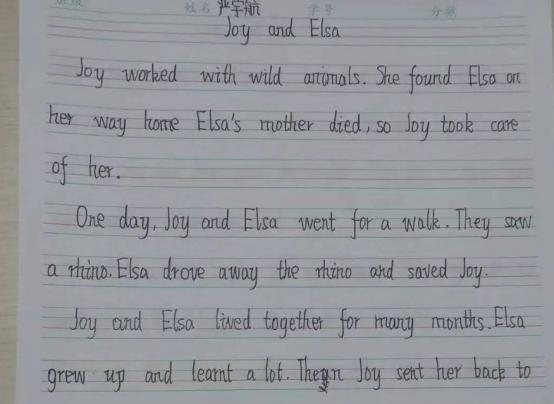 姓名 严宇航 学号 分数
Joy and Elsa
Joy worked with wild animals. She found Elsa on
her way home Elsa's mother died, so Joy took care
of her.
One day, Joy and Elsa went for a walk. They saw
a rhino. Elsa drove away the rhino and saved Joy.
Joy and Elsa lived together for many months. Elsa
grew up and learnt a lot. Then Joy sent her back to